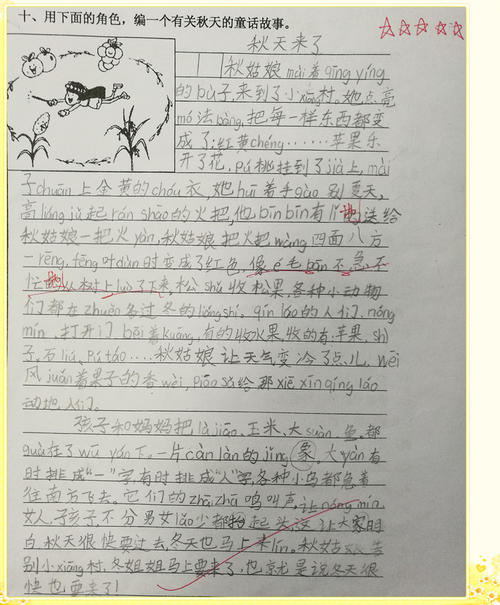 十、用下面的角色，编一个有关秋天的童话故事。
秋天来了
秋姑娘mài着qīng yíng
的bù子，来到了小xiāng村。她点亮
mó法bàng，把每一样东西都变
成了：红黄chéng……苹果乐
开了花，pú桃挂到了jià上，mài
子chuān上金黄的chóu衣，她huī着手gào别夏天，
高liáng jǔ起rán shāo的火把，他bīn bīn有lǐ地送给
秋姑娘一把火yàn，秋姑娘把火把wàng四面八方
一rēng，fēng叶dùn时变成了红色，像é毛bān不急不
忙地从树上luò了下来，松shǔ收松果，各种小动物
们都在zhuǎn多过冬的liáng shi。qín láo的人们，nóng
mín，打开门bēi着kuāng，有的收水果，收的有：苹果、shì
子、石liú、Pú táo……秋姑娘让天气变冷了点儿，wēi
风juǎn着果子的香wèi，piāo sǎ给那xiē xīn qíng láo
动地人们。
孩子和妈妈把là jiāo、玉米、大suàn、鱼都
guà在了wū yán下。一片càn làn的jǐng象。大yàn有
时排成“一”字，有时排成“人”字，各种小鸟都急着
往南方飞去。它们的zhā zhā鸣叫声，让nóng mín
女人，子孩子不分男女lǎo少都抬起头，这让大家明
白秋天很快要过去，冬天也马上来lín。秋姑娘告
别小xiāng村，冬姐姐马上要来了，也就是说冬天很
快也要来了！